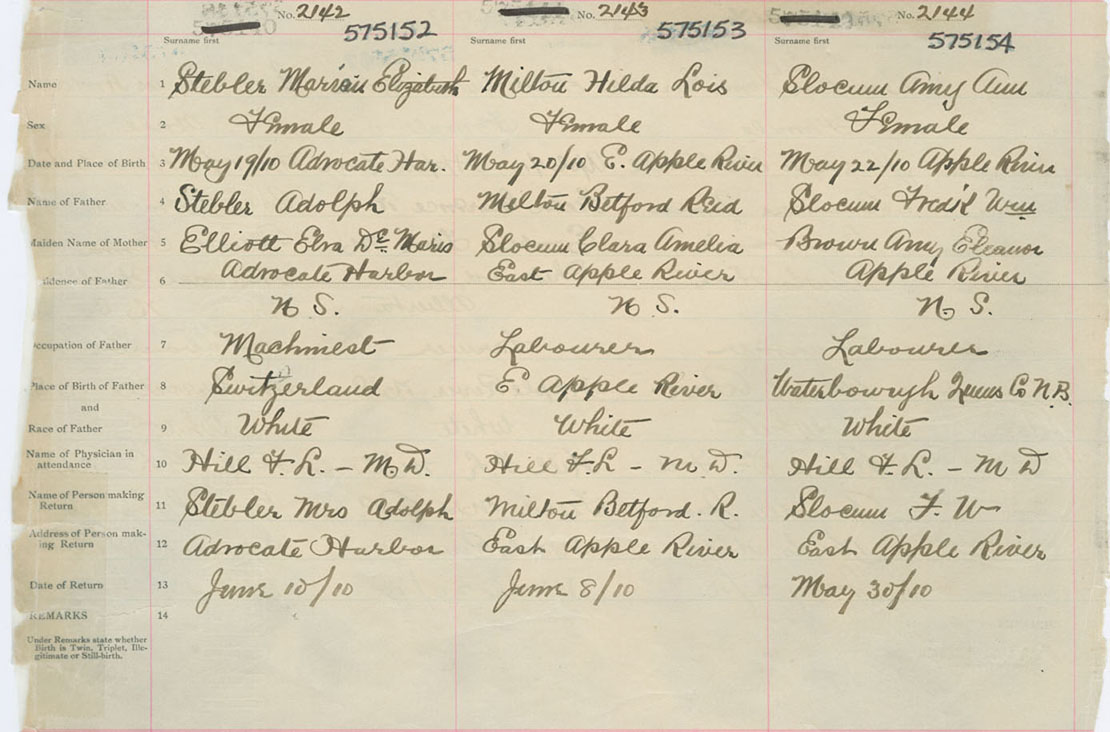 No. 2142 No. 2143 No. 2144
575152 575153 575154
Surname first Surname first Surname first
Name 1 Stebler Elizabeth Milton Hilda Lois Slocum Amy Ann
Sex 2 Female Female Female
Date and Place of Birth 3 May 19/10 Advocate Har. May 20/10 E. Apple River May 22/10 Apple River
Name of Father 4 Stebler Adolph Milton Betford Reid Slocum Fred'k Wm
Maiden Name of Mother 5 Elliott Elva De Maris Slocum Clara Amelia Brown Amy Eleanor
idence of Father 6 Advocate Harbor East Apple River Apple River
N S. N S. N S.
ccupation of Father 7 Machinest Labourer Labourer
Place of Birth of Father 8 Switzerland E Apple River Waterborough Queens Co N.B.
and
Race of Father 9 White White White
Name of Physician in
attendance 10 Hill F. L. - M. D. Hill F L - M. D. Hill F. L. - M D
Name of Person making
Return 11 Stebler Mrs Adolph Milton Betford. R. Slocum F. W
Address of Person mak-
ing Return 12 Advocate Harbor East Apple River East Apple River
Date of Return 13 June 10/10 June 8/10 May 30/10
REMARKS 14
Under Remarks state whether
Birth is Twin, Triplet, Ille-
gitimate or Still-birth.